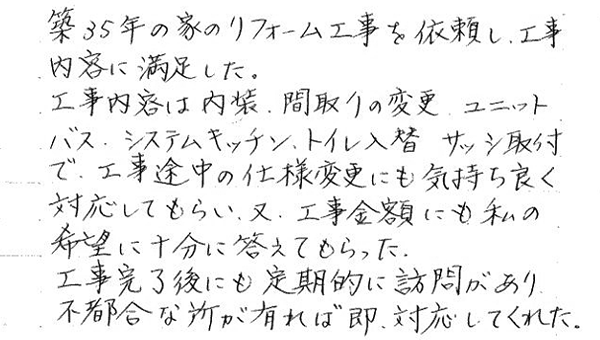 築35年の家のリフォーム工事を依頼し、工事
内容に満足した。
工事内容は内装、間取りの変更、ユニット
バス、システムキッチン、トイレ入替 サッシ取付
で、工事途中の仕様変更にも気持ち良く
対応してもらい、又、工事金額にも私の
希望に十分に答えてもらった。
工事完了後にも定期的に訪問があり、
不都合な所が有れば即、対応してくれた。